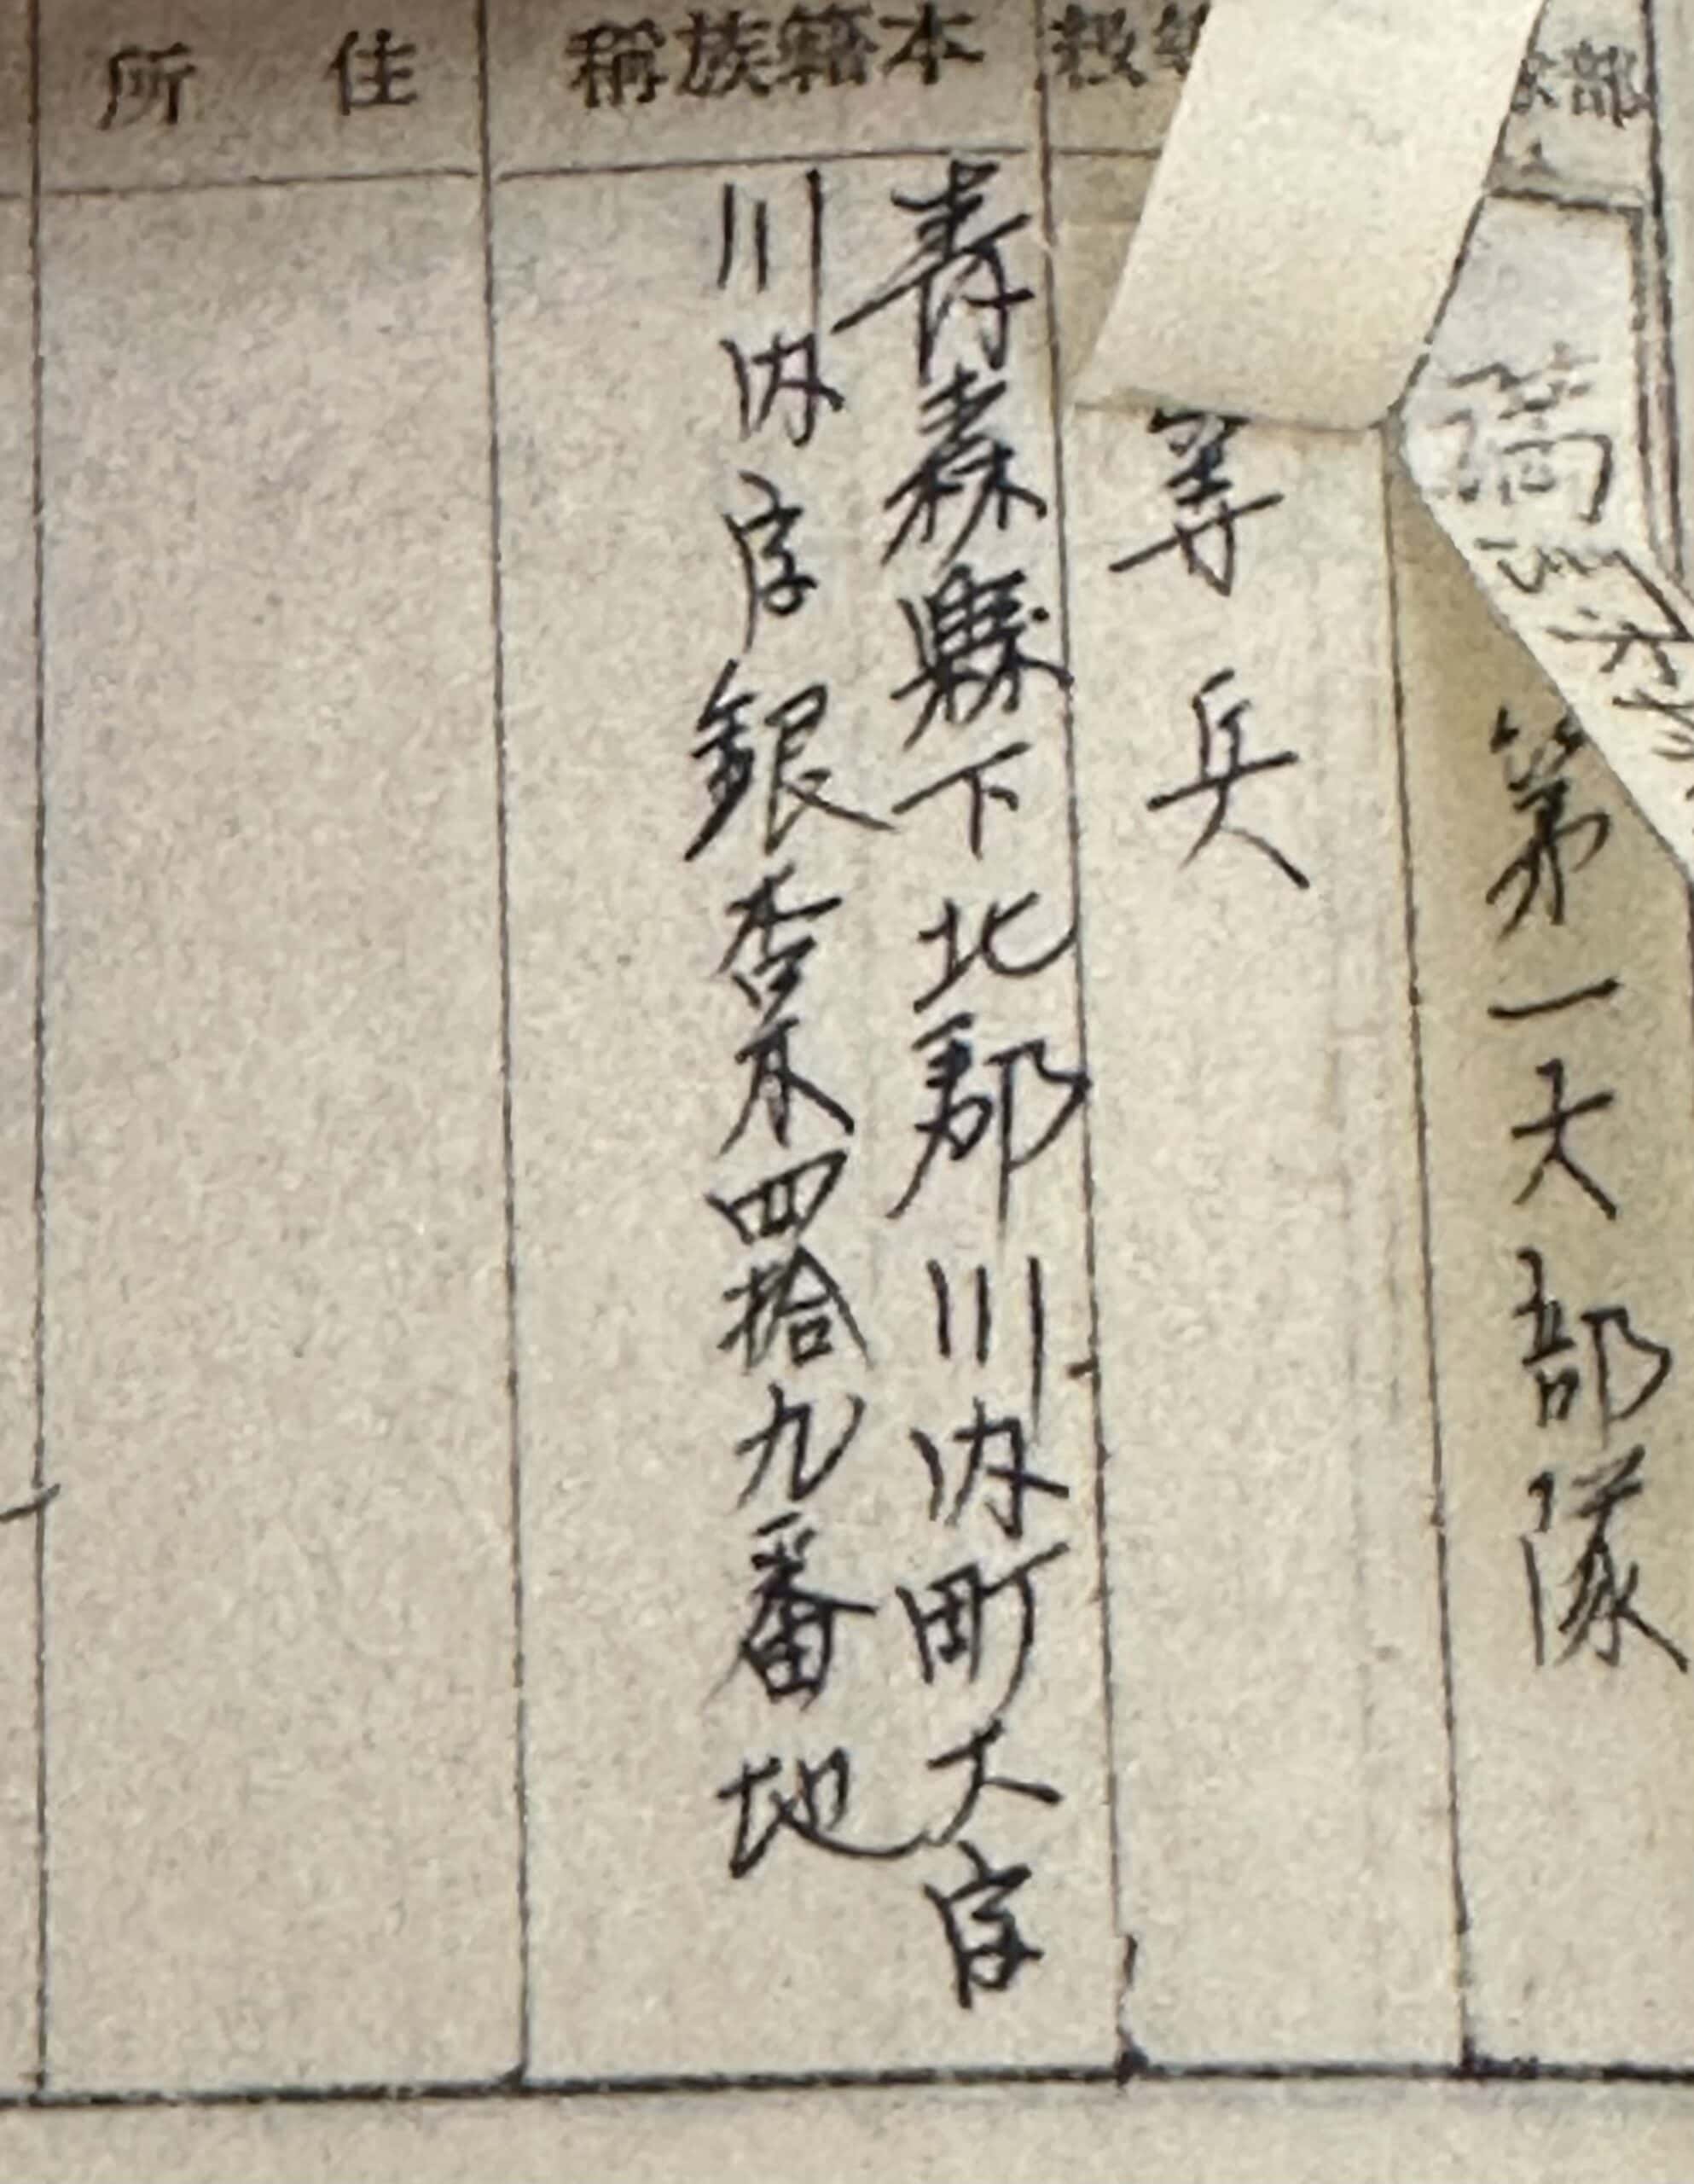 部
第一大部隊
等兵
本籍族稱
青森縣下北郡川内町大字
川内字銀杏木四拾九番地
住所